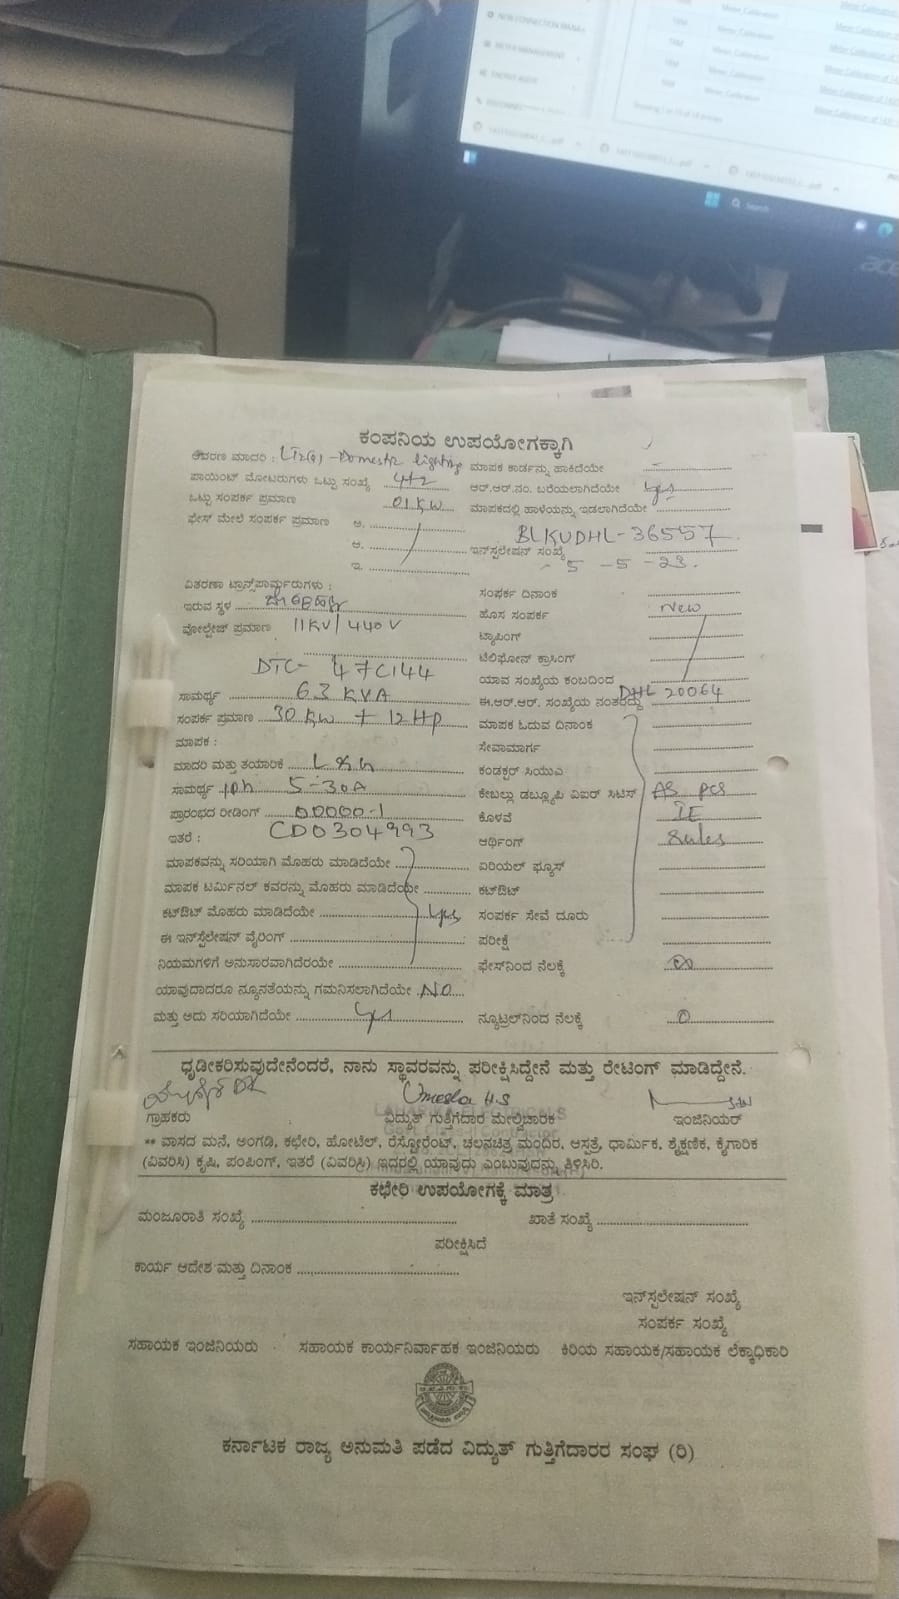 NEW CONNECTION MANA
METER MANAGEMENT
ENERGY AUDIT
Meter_Calibration
Meter_Calibration
Meter_Calibration
Search
acer
ಕಂಪನಿಯ ಉಪಯೋಗಕ್ಕಾಗಿ
ಆವರಣ ಮಾದರಿ : LT2(a) -Domestic lighting ಮಾಪಕ ಕಾರ್ಡನ್ನು ಹಾಕಿದೆಯೇ
ಪಾಯಿಂಟ್ ಮೋಟರುಗಳು ಒಟ್ಟು ಸಂಖ್ಯೆ 4+2 ಆರ್.ಆರ್.ನಂ. ಬರೆಯಲಾಗಿದೆಯೇ Yes
ಒಟ್ಟು ಸಂಪರ್ಕ ಪ್ರಮಾಣ 01 KW ಮಾಪಕದಲ್ಲಿ ಹಾಳೆಯನ್ನು ಇಡಲಾಗಿದೆಯೇ
ಫೇಸ್ ಮೇಲೆ ಸಂಪರ್ಕ ಪ್ರಮಾಣ ಅ. BLKUDHL-36557
ಆ. ಇನ್‌ಸ್ಟಲೇಷನ್ ಸಂಖ್ಯೆ
ಇ. - 5 -5 -23.
ವಿತರಣಾ ಟ್ರಾನ್ಸ್‌ಫಾರ್ಮರುಗಳು : ಸಂಪರ್ಕ ದಿನಾಂಕ
ಇರುವ ಸ್ಥಳ ಹೊಸ ಸಂಪರ್ಕ New
ವೋಲ್ಟೇಜ್ ಪ್ರಮಾಣ 11KV/440V ಟ್ಯಾಪಿಂಗ್
ಟೆಲಿಫೋನ್ ಕ್ರಾಸಿಂಗ್
DTC- 47C144 ಯಾವ ಸಂಖ್ಯೆಯ ಕಂಬದಿಂದ
ಸಾಮರ್ಥ್ಯ 63 KVA ಈ.ಆರ್.ಆರ್. ಸಂಖ್ಯೆಯ ನಂತರದ್ದು DHL 20064
ಸಂಪರ್ಕ ಪ್ರಮಾಣ 30 KW + 12 HP ಮಾಪಕ ಓದುವ ದಿನಾಂಕ
ಮಾಪಕ : ಸೇವಾಮಾರ್ಗ
ಮಾದರಿ ಮತ್ತು ತಯಾರಿಕೆ L&G ಕಂಡಕ್ಟರ್ ಸಿಯುಎ
ಸಾಮರ್ಥ್ಯ 1ph 5-30A ಕೇಬಲ್ಲು ಡಬ್ಲ್ಯೂಪಿ ವಿಐಆರ್ ಸಿಟಿಸ್ AS per
ಪ್ರಾರಂಭದ ರೀಡಿಂಗ್ 00000-1 ಕೊಳವೆ IE
ಇತರೆ : CD0304993 ಅರ್ಥಿಂಗ್ Rules
ಮಾಪಕವನ್ನು ಸರಿಯಾಗಿ ಮೊಹರು ಮಾಡಿದೆಯೇ ಏರಿಯಲ್ ಫ್ಯೂಸ್
ಮಾಪಕ ಟರ್ಮಿನಲ್ ಕವರನ್ನು ಮೊಹರು ಮಾಡಿದೆಯೇ ಕಟ್‌ಔಟ್
ಕಟ್‌ಔಟ್ ಮೊಹರು ಮಾಡಿದೆಯೇ Yes ಸಂಪರ್ಕ ಸೇವೆ ದೂರು
ಈ ಇನ್‌ಸ್ಟೆಲೇಷನ್ ವೈರಿಂಗ್ ಪರೀಕ್ಷೆ
ನಿಯಮಗಳಿಗೆ ಅನುಸಾರವಾಗಿದೆರೆಯೇ ಫೇಸ್‌ನಿಂದ ನೆಲಕ್ಕೆ ∞
ಯಾವುದಾದರೂ ನ್ಯೂನತೆಯನ್ನು ಗಮನಿಸಲಾಗಿದೆಯೇ NO
ಮತ್ತು ಅದು ಸರಿಯಾಗಿದೆಯೇ Yes ನ್ಯೂಟ್ರಲ್‌ನಿಂದ ನೆಲಕ್ಕೆ 0
ಧೃಡೀಕರಿಸುವುದೇನೆಂದರೆ, ನಾನು ಸ್ಥಾವರವನ್ನು ಪರೀಕ್ಷಿಸಿದ್ದೇನೆ ಮತ್ತು ರೇಟಿಂಗ್ ಮಾಡಿದ್ದೇನೆ.
Umesha H.S
ಗ್ರಾಹಕರು ವಿದ್ಯುತ್ ಗುತ್ತಿಗೆದಾರ ಮೇಲ್ವಿಚಾರಕ ಇಂಜಿನಿಯರ್
** ವಾಸದ ಮನೆ, ಅಂಗಡಿ, ಕಛೇರಿ, ಹೋಟೆಲ್, ರೆಸ್ಟೋರೆಂಟ್, ಚಲನಚಿತ್ರ ಮಂದಿರ, ಆಸ್ಪತ್ರೆ, ಧಾರ್ಮಿಕ, ಶೈಕ್ಷಣಿಕ, ಕೈಗಾರಿಕೆ
(ವಿವರಿಸಿ) ಕೃಷಿ, ಪಂಪಿಂಗ್, ಇತರೆ (ವಿವರಿಸಿ) ಇದರಲ್ಲಿ ಯಾವುದು ಎಂಬುವುದನ್ನು ತಿಳಿಸಿರಿ.
ಕಛೇರಿ ಉಪಯೋಗಕ್ಕೆ ಮಾತ್ರ
ಮಂಜೂರಾತಿ ಸಂಖ್ಯೆ ಖಾತೆ ಸಂಖ್ಯೆ
ಪರೀಕ್ಷಿಸಿದೆ
ಕಾರ್ಯ ಆದೇಶ ಮತ್ತು ದಿನಾಂಕ
ಇನ್‌ಸ್ಟಲೇಷನ್ ಸಂಖ್ಯೆ
ಸಂಪರ್ಕ ಸಂಖ್ಯೆ
ಸಹಾಯಕ ಇಂಜಿನಿಯರು ಸಹಾಯಕ ಕಾರ್ಯನಿರ್ವಾಹಕ ಇಂಜಿನಿಯರು ಕಿರಿಯ ಸಹಾಯಕ/ಸಹಾಯಕ ಲೆಕ್ಕಾಧಿಕಾರಿ
ಕರ್ನಾಟಕ ರಾಜ್ಯ ಅನುಮತಿ ಪಡೆದ ವಿದ್ಯುತ್ ಗುತ್ತಿಗೆದಾರರ ಸಂಘ (ರಿ)